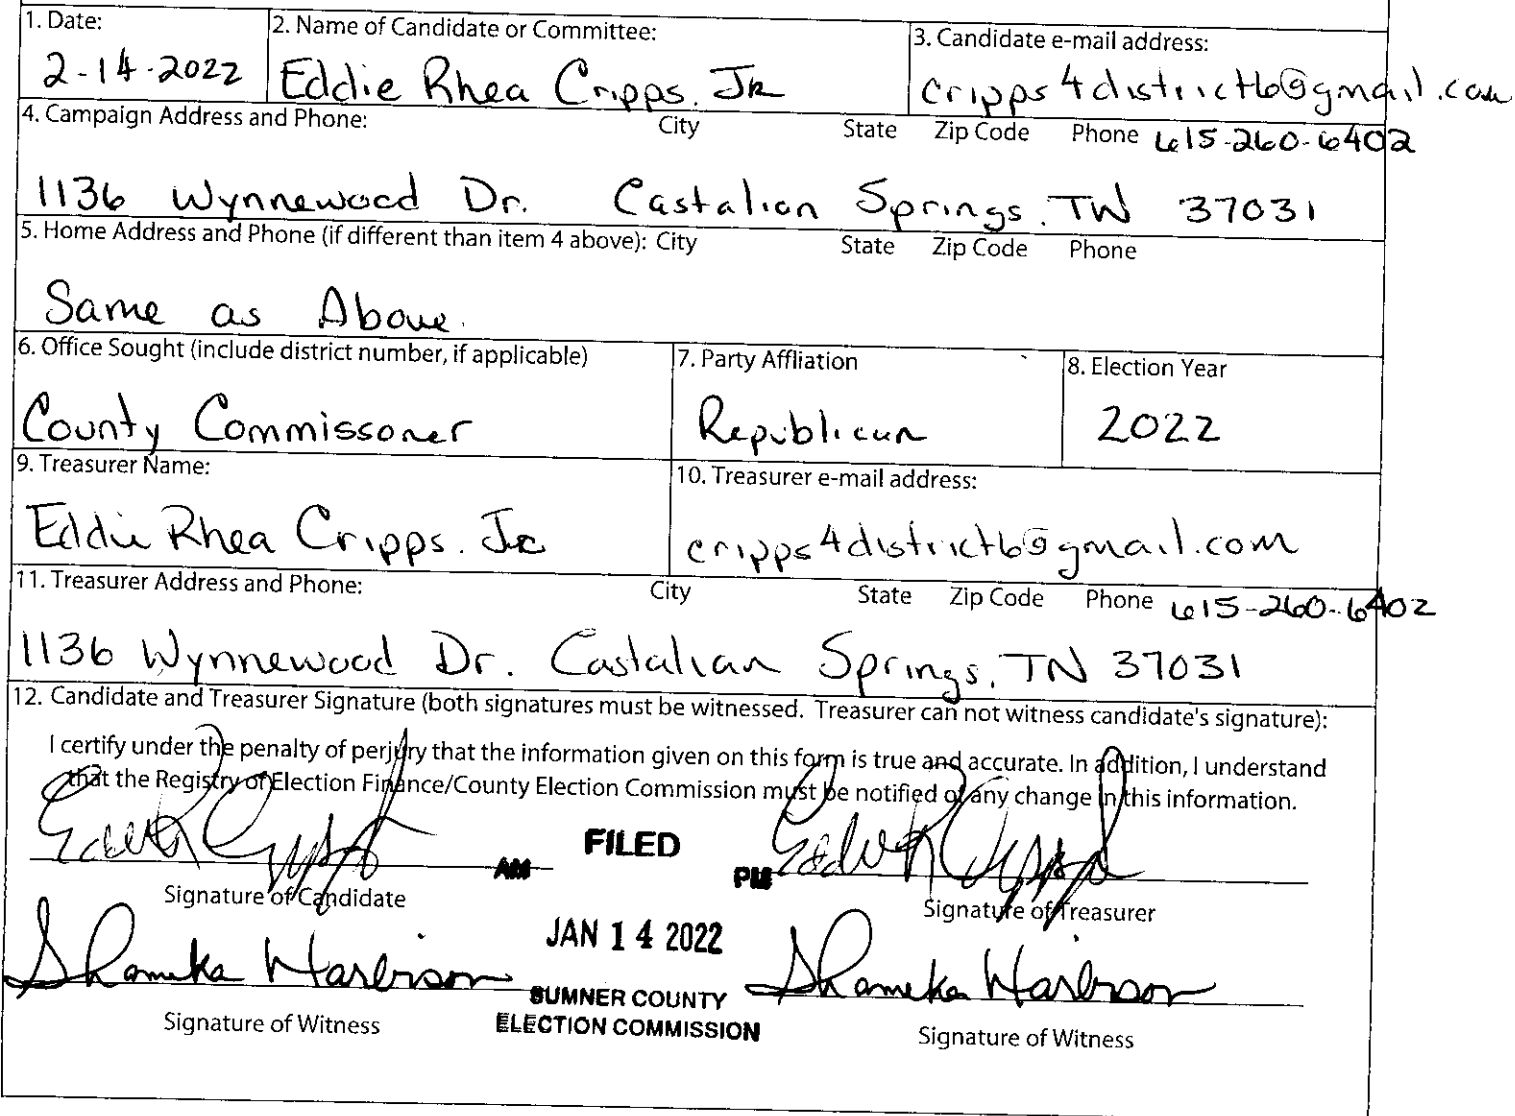 1. Date:
2-14-2022
2. Name of Candidate or Committee:
Eddie Rhea Cripps. JR
3. Candidate e-mail address:
cripps4district6@gmail.com
4. Campaign Address and Phone: City State Zip Code Phone 615-260-6402
1136 Wynnewood Dr. Castalion Springs. TN 37031
5. Home Address and Phone (if different than item 4 above): City State Zip Code Phone
Same as Above.
6. Office Sought (include district number, if applicable)
County Commissoner
7. Party Affliation
Republican
8. Election Year
2022
9. Treasurer Name:
Eddie Rhea Cripps. Jr
10. Treasurer e-mail address:
cripps4district6@gmail.com
11. Treasurer Address and Phone: City State Zip Code Phone 615-260-6402
1136 Wynnewood Dr. Castalian Springs, TN 37031
12. Candidate and Treasurer Signature (both signatures must be witnessed. Treasurer can not witness candidate's signature):
I certify under the penalty of perjury that the information given on this form is true and accurate. In addition, I understand
that the Registry of Election Finance/County Election Commission must be notified of any change in this information.
AM FILED PM
Signature of Candidate
Signature of Treasurer
JAN 14 2022
Shameka Harbison
Shameka Harbison
SUMNER COUNTY
ELECTION COMMISSION
Signature of Witness
Signature of Witness